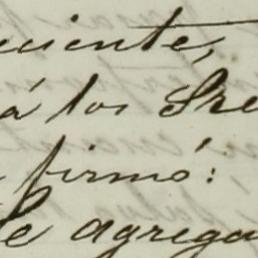 ciente,
á los Sre
firmó:
Se agrega